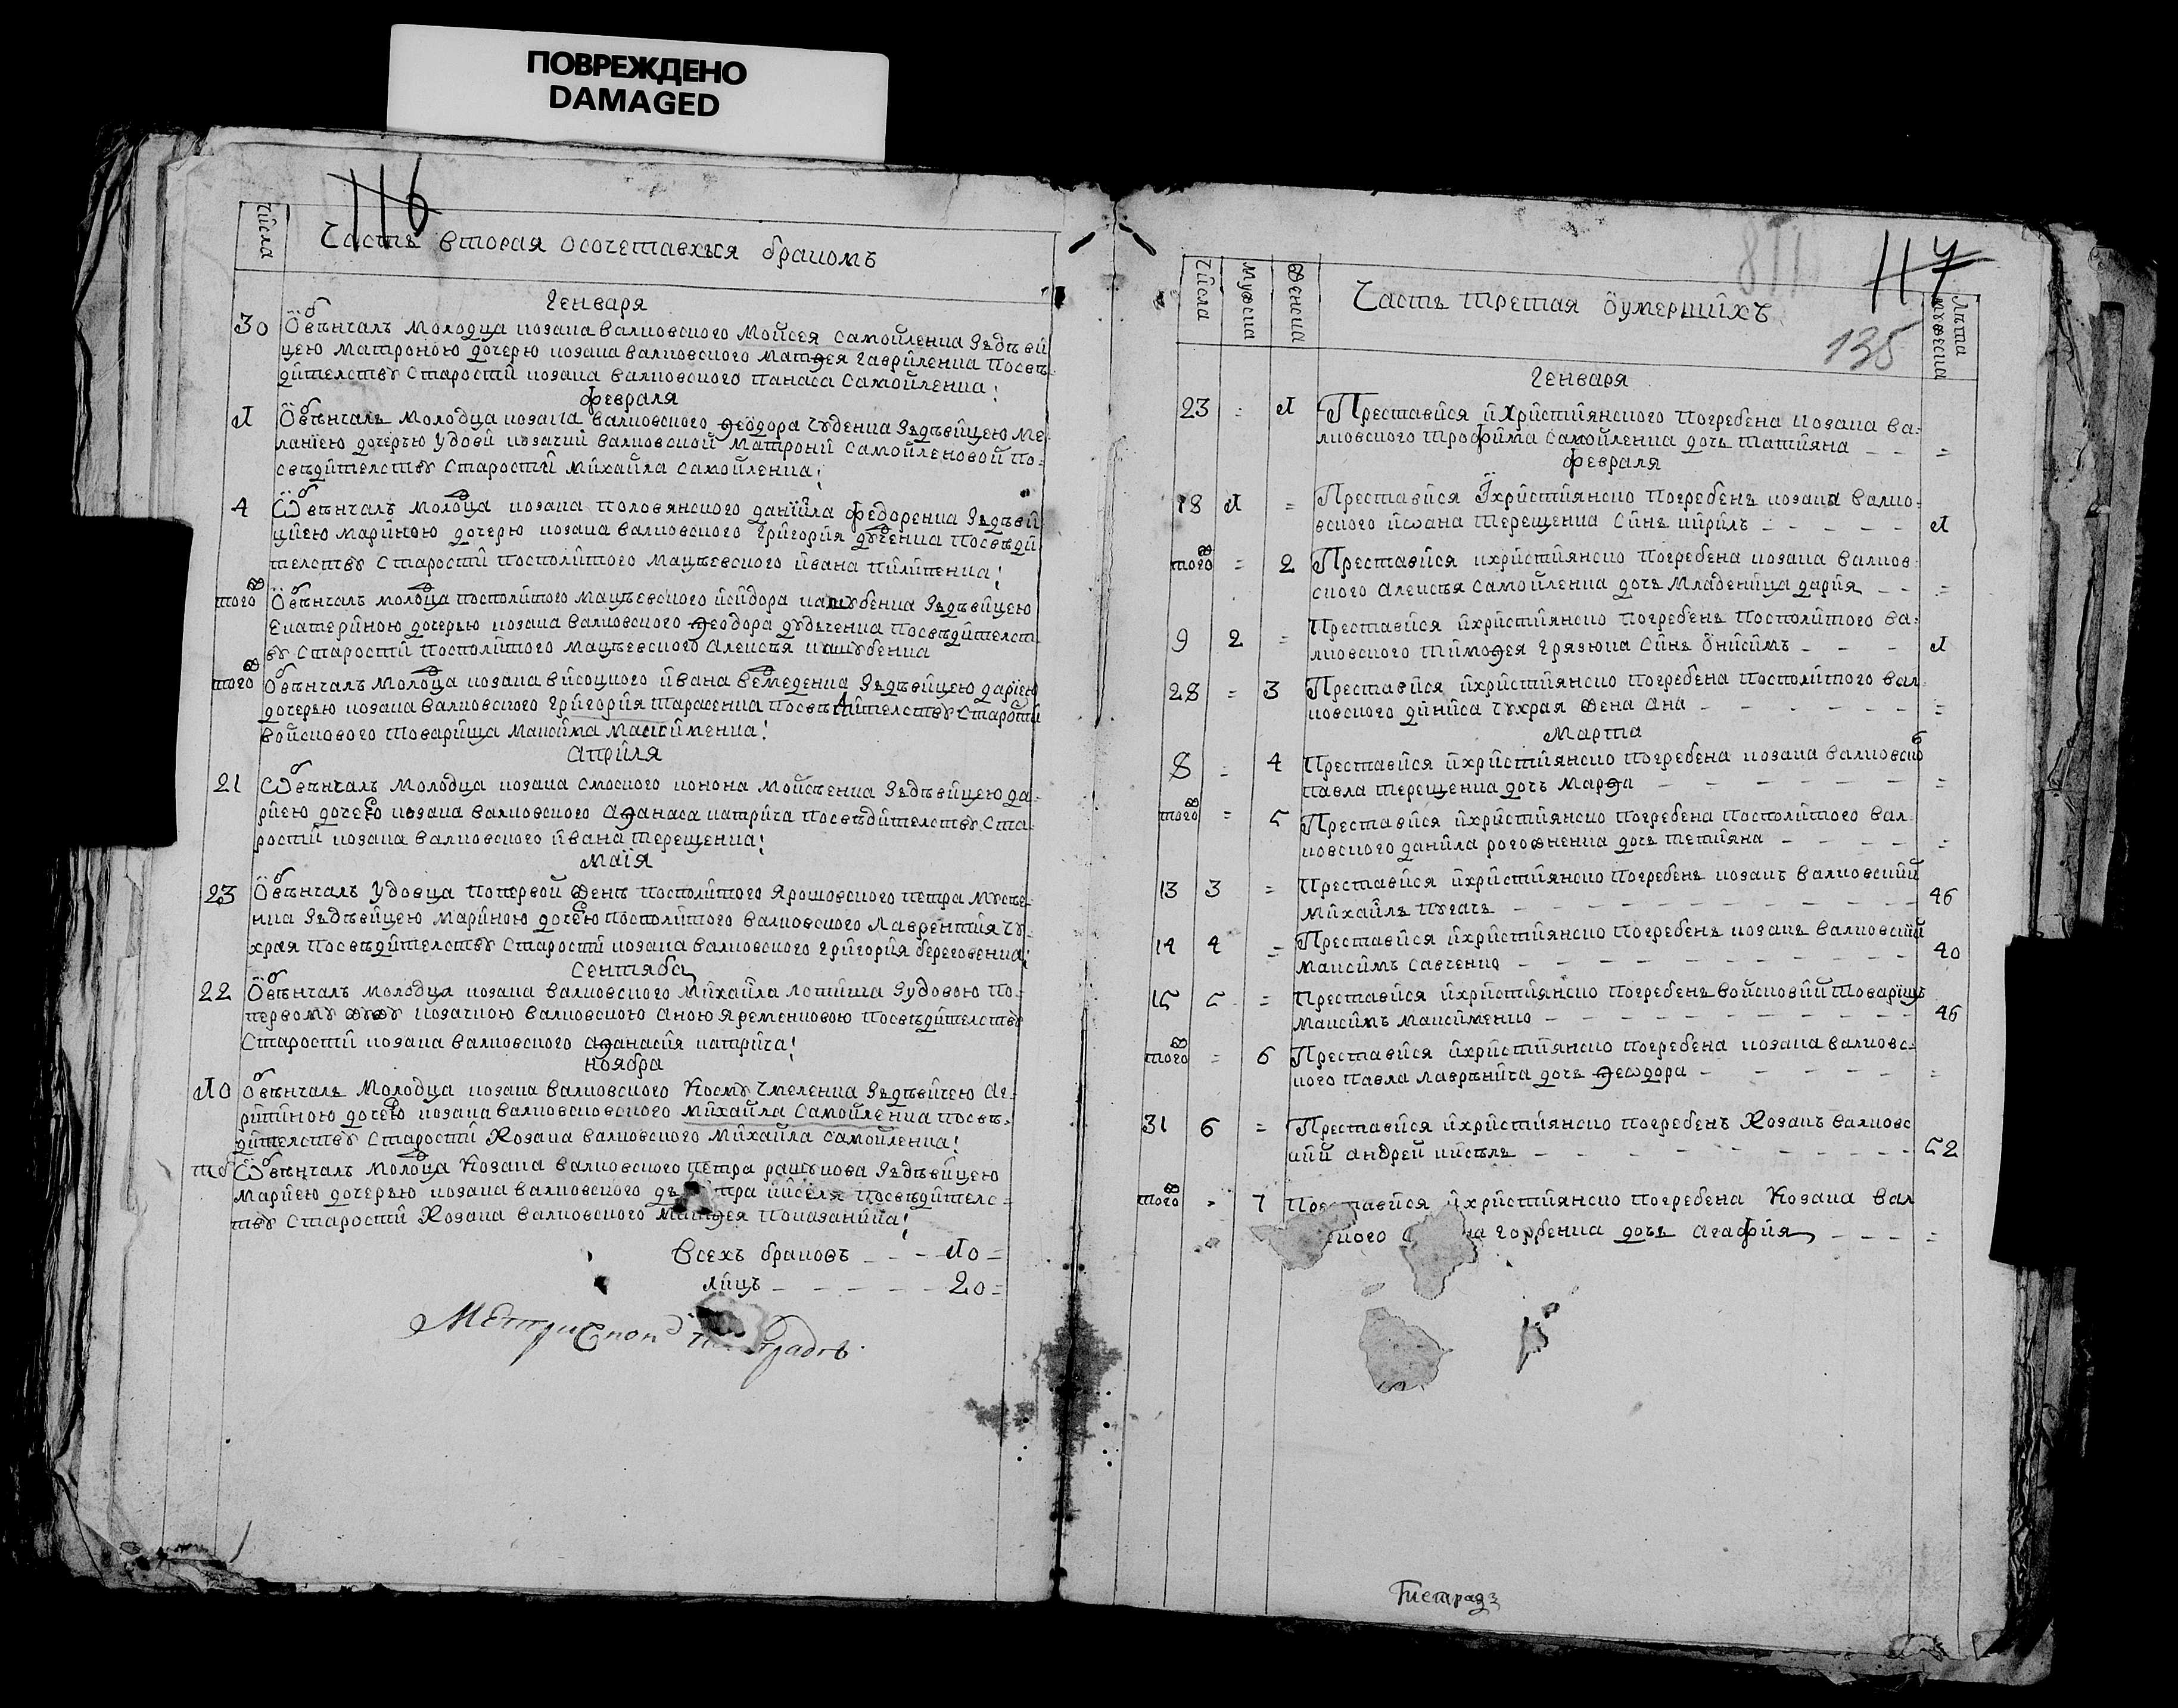 ПОВРЕЖДЕНО
DAMAGED
116
Числа
Часть вторая осочетавхъся бракомъ
Генваря
30 Обвѣнчалъ молодца козака валковского Мойсея Самойленка зъдѣви
цею Матроною дочерю козака валковского Матѳея Гаврйленка посвѣ
дителству старости козака валковского Панаса Самойленка:
февраля
1 Обвѣнчалъ молодца козака валковского Ѳеодора Чуденка зъдѣвйцею Ме
ланїею дочерью удовй козачкй валковской Матронй Самойленовой по=
свѣдйтелству старостй Мйхайла Самойленка:
4 Ѡбвѣнчалъ молодца козака половянского данйила федоренка зъдѣвй
цйею Марйною дочерю козака валковского Грйгорйя посвѣдй
телству старостй посполйтого мацѣевского йвана пйлйпенка!
того Обвѣнчалъ молодца посполйтого мацѣевского йсйдора кашубенка зъдѣвйцею
Екатерйною дочерью козака валковского Ѳеодора дудченка посвѣдйтелст
ву старостй посполйтого мацѣевского Алексѣя кашубенка
того Обвѣнчалъ молодца козака вйсоцкого йвана зъдѣвйцею дарїею
дочерью козака валковского Грйгорйя Тарасенка посвѣдйтелству старостй
войскового товарйща Максйма Максйменка!
Апрйля
21 Ѡбвѣнчалъ молодца козака смоского конона Мойсѣенка зъдѣвйцею да=
рйею дочерю козака валковского Аѳанаса катрйча посвѣдйтелству ста=
ростй козака валковского йвана терещенка!
Маїя
23 Обвѣнчалъ удовца попервой женѣ посполйтого Ярошовского петра Мусѣе
нка зъдѣвйцею Марйною дочерю посполйтого валковского Лаврентйя Чу
храя посвѣдйтелству старостй козака валковского Грйгорйя береговенка!
Сентября
22 Обвѣнчалъ молодца козака валковского Мйхайла зудовою по=
первому мужу козачкою валковскою Аною Яременковою посвѣдйтелству
Старостй козака валковского Аѳанасйя катрйча!
Ноября
10 Обвѣнчалъ Молодца козака валковского Косму Чмеленка зъдѣвйчею Аг=
рйпйною дочерю козака валковсковского Мйхайла Самойленка посвѣ=
дйтелству Старостй Козака валковского Мйхайла Самойленка!
того Ѡбвѣнчалъ молодца Козака валковского петра зъдѣвйцею
Марйею дочерью козака валковского кйселя посвѣдйтелс=
тву старостй Козака валковского Матѳея показанйка!
Всехъ браковъ - - - 10=
лйцъ - - - - - - 20=
117
135
Числа
Мужска
Женска
Часть третая оумершйхъ
Лѣта мужеска
Генваря
23 = 1 Преставйся йхрйстйянского погребена козака ва=
лковского Трофйма Самойленка дочъ татйяна - - =
февраля
18 1 = Преставйся йхрйстйянско погребенъ козака валко=
вского йѡана терещенка сйнъ кйрйлъ - - - - - 1
того = 2 Преставйся йхрйстйянско погребена козака валков=
ского Алексѣя Самойленка дочъ младенйца дарйя - - =
9 2 = Преставйся йхрйстйянско погребенъ посполйтого ва=
лковского Тймоѳея Грязюка сйнъ Онйсймъ - - - 1
28 = 3 Преставйся йхрйстйянско погребена посполйтого вал
ковского дйнйса Чухрая жена Ана - - - - - - - =
Марта
8 = 4 Преставйся йхрйстйянско погребена козака валковско
павла терещенка дочъ Марѳа - - - - - - =
того = 5 Преставйся йхрйстйянско погребена посполйтого вал
ковского данйла рогожненка дочъ тетйяна - - - - =
13 3 = Преставйся йхрйстйянско погребенъ козакъ валковскйй
Мйхайлъ Пугачъ - - - - - - - - - - - 46
14 4 = Преставйся йхрйстйянско погребенъ козакъ валковскйй
Максймъ Савченко - - - - - - - - - - 40
15 5 = Преставйся йхрйстйянско погребенъ войсковйй товарйщъ
Максймъ Максйменко - - - - - - - - - - 46
того = 6 Преставйся йхрйстйянско погребена козака валковс=
кого павла лаврѣнйча дочъ Ѳеодора - - - - - - =
31 6 = Преставйся йхрйстйянско погребенъ Козакъ валковс
кйй андрей кйсѣль - - - - - - - - - - 52
того = 7 Преставйся йхрйстйянско погребена Козака вал
ского горбенка дочъ Агафйя - - - =